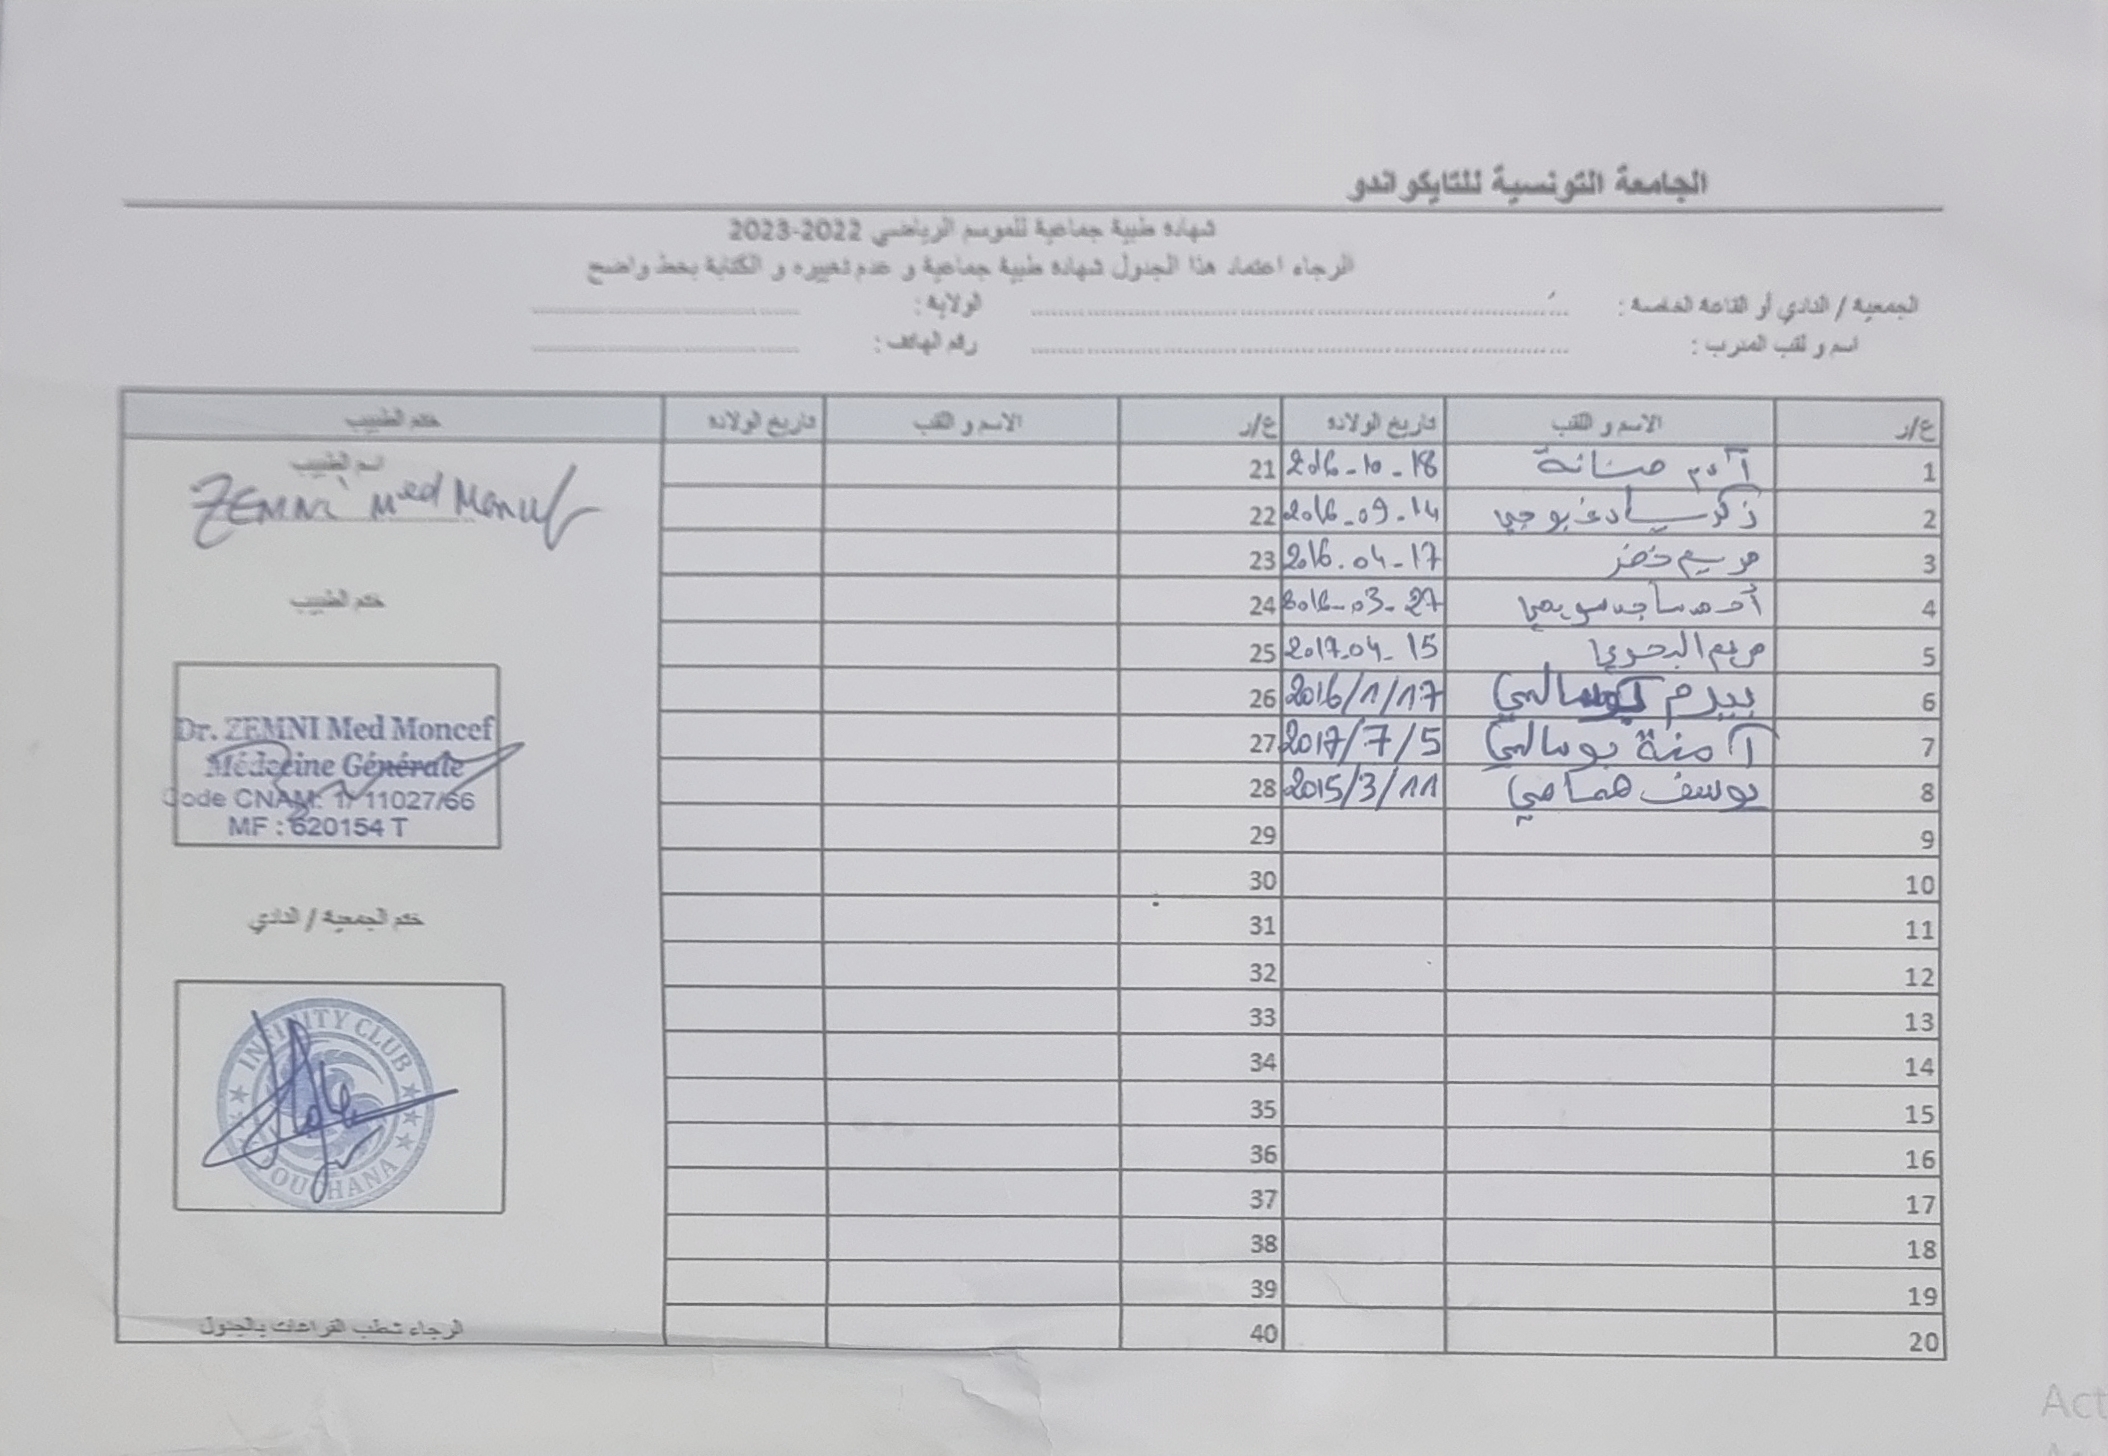 الجامعة التونسية للتايكواندو
شهادة طبية جماعية للموسم الرياضي 2022-2023
الرجاء اعتماد هذا الجدول شهادة طبية جماعية و عدم تغييره و الكتابة بخط واضح
الجمعية / النادي أو القاعة الخاصة : الولاية :
اسم و لقب المدرب : رقم الهاتف :
ع/ر الاسم و اللقب تاريخ الولادة ع/ر الاسم و اللقب تاريخ الولادة ختم الطبيب
1 آدم 18-10-2016 21
2 زكرياء 14-09-2016 22
3 مريم خضر 17-04-2016 23
4 أحمد ساجد سويعي 27-03-2016 24
5 مريم البحوري 15-04-2017 25
6 بيرم بوسالمي 2016/1/17 26
7 آمنة بوسالمي 2017/7/5 27
8 يوسف همامي 2015/3/11 28
9 29
10 30
11 31
12 32
13 33
14 34
15 35
16 36
17 37
18 38
19 39
20 40
اسم الطبيب
ZEMNI Med Moncef
ختم الطبيب
Dr. ZEMNI Med Moncef
Médecine Générale
Code CNAM: 1/ 11027/66
MF : 620154 T
ختم الجمعية / النادي
INFINITY CLUB
الرجاء شطب الفراغات بالجدول
Act